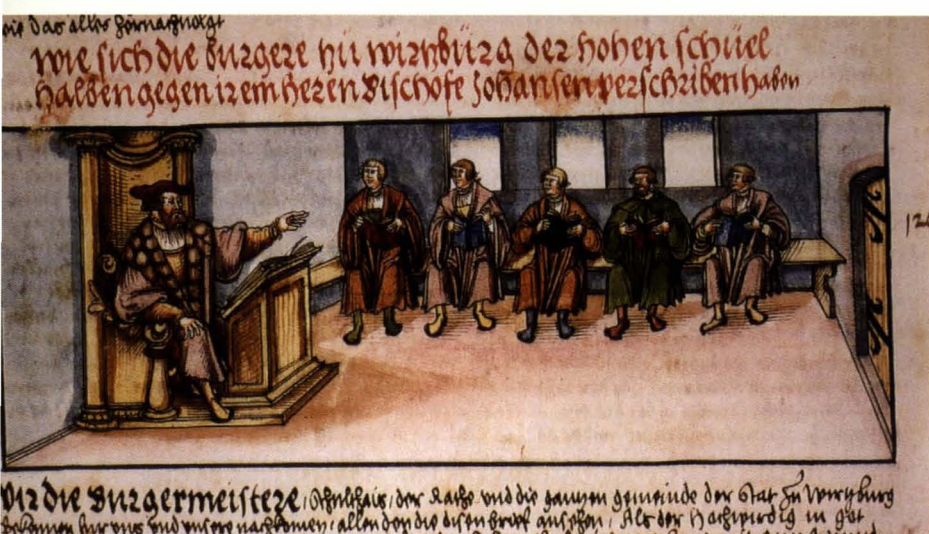 wie das alles hernachvolgt
wie sich die burgere zu wirtzburg der hohen schuel
halben gegen irem heren Bischofe Johansen verschriben haben
Wir die Burgermeistere, Schulthais, der Rathe und die gantzen gemeinde der Stat zu Wirtzburg
bekennen fur uns und unsere nachkomen, allen den die disen brief ansehen, Als der Hochwirdig in got